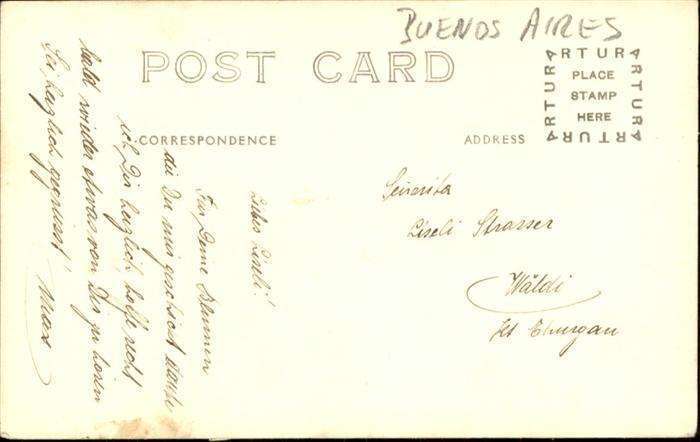 BUENOS AIRES
POST CARD
ARTURA
ARTURA
ARTURA
ARTURA
PLACE
STAMP
HERE
CORRESPONDENCE
ADDRESS
Liebes Liseli!
Für Deine Blumen
die Du mir geschickt danke
ich Dir herzlich, hoffe recht
bald wieder etwas von Dir zu hören
Sei herzlich gegrüsst!
Max
Señorita
Liseli Strasser
Wäldi
Kt Thurgau